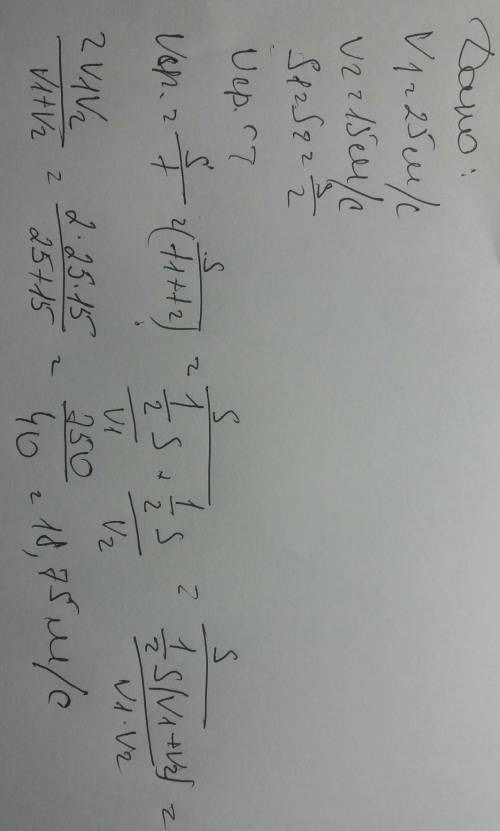 Дано:
V1 = 25 м/с
V2 = 15 м/с
S1 = S2 = S/2
Vср. - ?
Vср. = S/t = S/(t1+t2) = S/((1/2 S)/V1 + (1/2 S)/V2) = S/((1/2 S(V1+V2))/(V1·V2)) =
2V1V2/(V1+V2) = (2·25·15)/(25+15) = 750/40 = 18,75 м/с